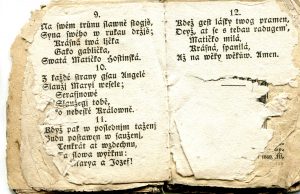 9.
Na swém trůnu slawně stogjš,
Syna swého w rukau držjš;
Krásná twá ljčka
Gako gabljčka,
Swatá Matičko Hostinská.
10.
Z každé strany gsau Angelé
Slaužj Maryi wesele;
Serafinowé
Slaužegj tobě,
nebeské Králowně.
11.
Když pak w poslednjm taženj
Budu postawen w sauženj,
Tenkrát at wzdechnu,
slowa wyřknu:
Marya a Jozef!
12.
Kdež gest lásky twog pramen,
Deyž, at se s tebau radugem,
Matičko milá,
Krásná, spanilá,
Až na wěky wěkůw. Amen.